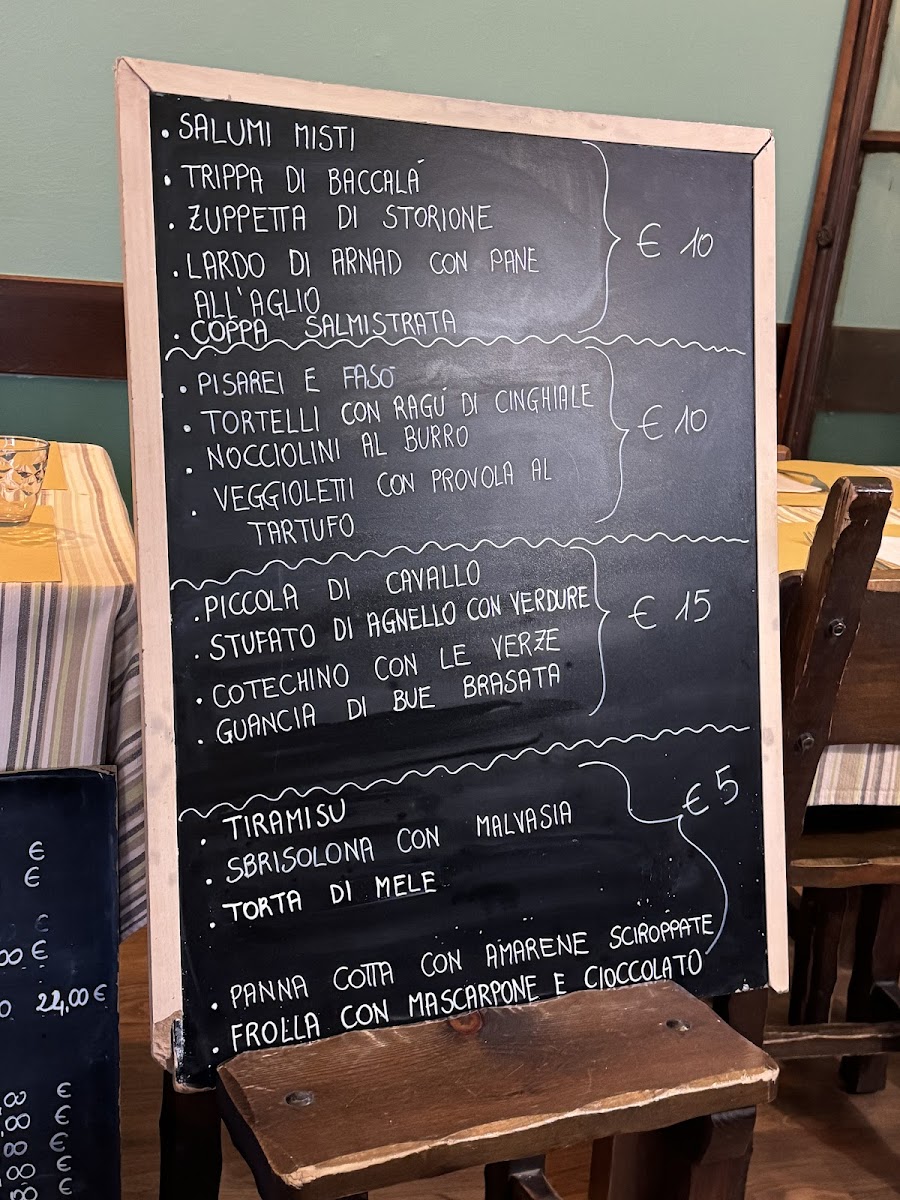 • SALUMI MISTI
• TRIPPA DI BACCALÁ
• ZUPPETTA DI STORIONE
• LARDO DI ARNAD CON PANE
ALL'AGLIO
• COPPA SALMISTRATA
€ 10
• PISAREI E FASÓ
• TORTELLI CON RAGÚ DI CINGHIALE
• NOCCIOLINI AL BURRO
• VEGGIOLETTI CON PROVOLA AL
TARTUFO
€ 10
• PICCOLA DI CAVALLO
• STUFATO DI AGNELLO CON VERDURE
• COTECHINO CON LE VERZE
• GUANCIA DI BUE BRASATA
€ 15
• TIRAMISU
• SBRISOLONA CON MALVASIA
• TORTA DI MELE
• PANNA COTTA CON AMARENE SCIROPPATE
• FROLLA CON MASCARPONE E CIOCCOLATO
€ 5
€
€
€
00 €
22,00 €
8 €
8 €
8 €
8 €
8 €